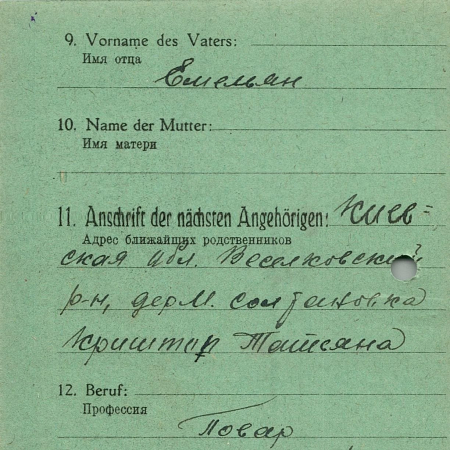 9. Vorname des Vaters:
Имя отца
Емельян
10. Name der Mutter:
Имя матери
11. Anschrift der nächsten Angehörigen: Киев-
Адрес ближайших родственников
ская обл. Веселковский
р-н, дер. М. солтановка
Криштар Татьяна
12. Beruf:
Профессия
Повар